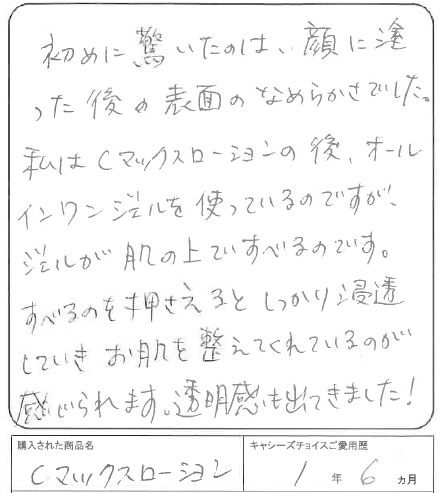 初めに驚いたのは、顔に塗
った後の表面のなめらかさでした。
私はCマックスローションの後、オール
インワンジェルを使っているのですが、
ジェルが肌の上ですべるのです。
すべるのを押さえるとしっかり浸透
していきお肌を整えてくれているのが
感じられます。透明感も出てきました!
購入された商品名
Cマックスローション
キャシーズチョイスご愛用歴
1年6ヵ月